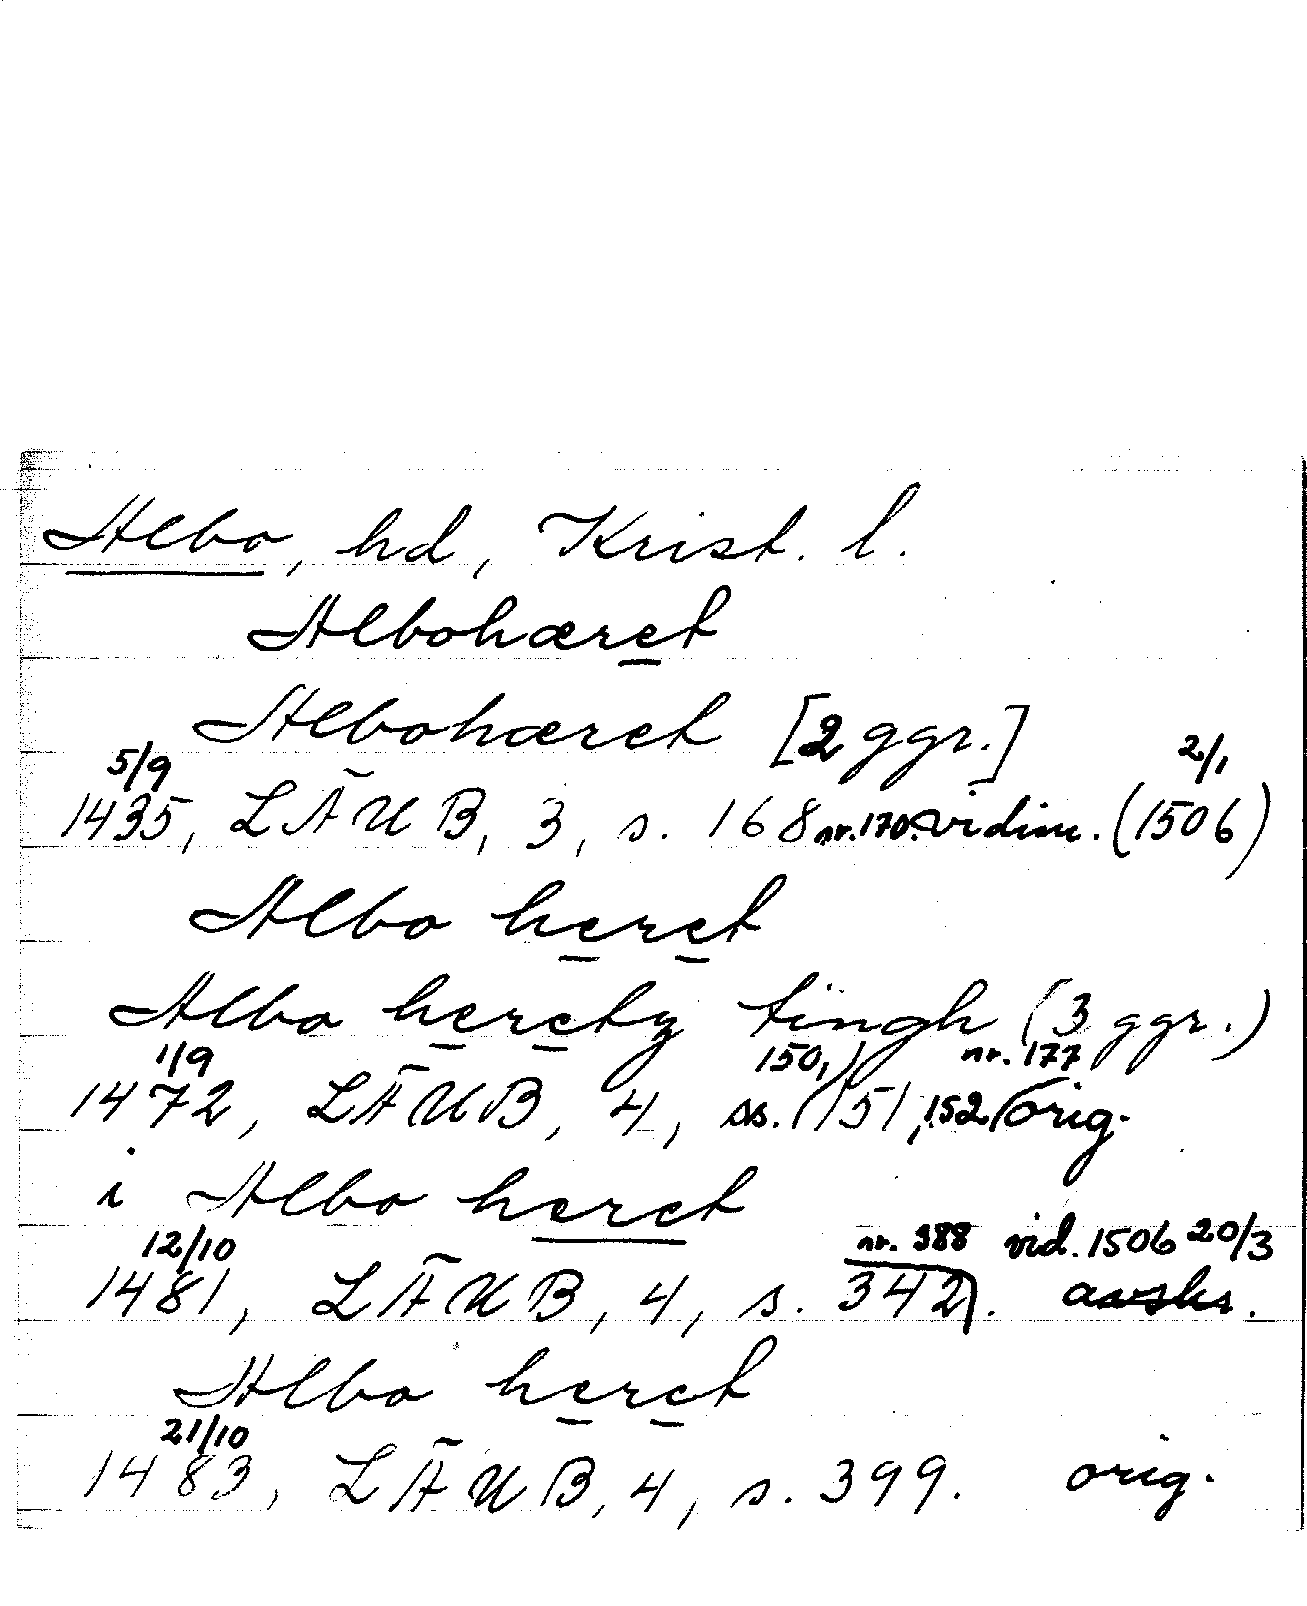 Albo, hd, Krist. l.
Albohæret
Albohæret [2 ggr.]
5/9 2/1
1435, LÄUB, 3, s. 168 nr. 170. vidim. (1506)
Albo heret
Albo heretz tingh (3 ggr.)
1/9 150, nr. 177
1472, LÄUB, 4, ss. 151, 152 orig.
i Albo heret
12/10 nr. 388 vid. 1506 20/3
1481, LÄUB, 4, s. 342.
Albo heret
21/10
1483, LÄUB, 4, s. 399. orig.